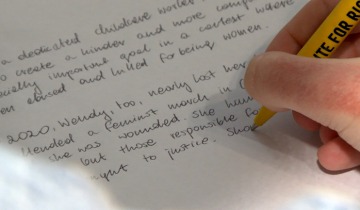 a dedicated childcare worker
to create a kinder and more comp
ecially important goal in a context where
en abused and killed for being women.
2020, Wendy, too, nearly lost her
ttended a feminist march in
she was wounded. She
but those responsible fo
ught to justice. Sho
TE FOR RI